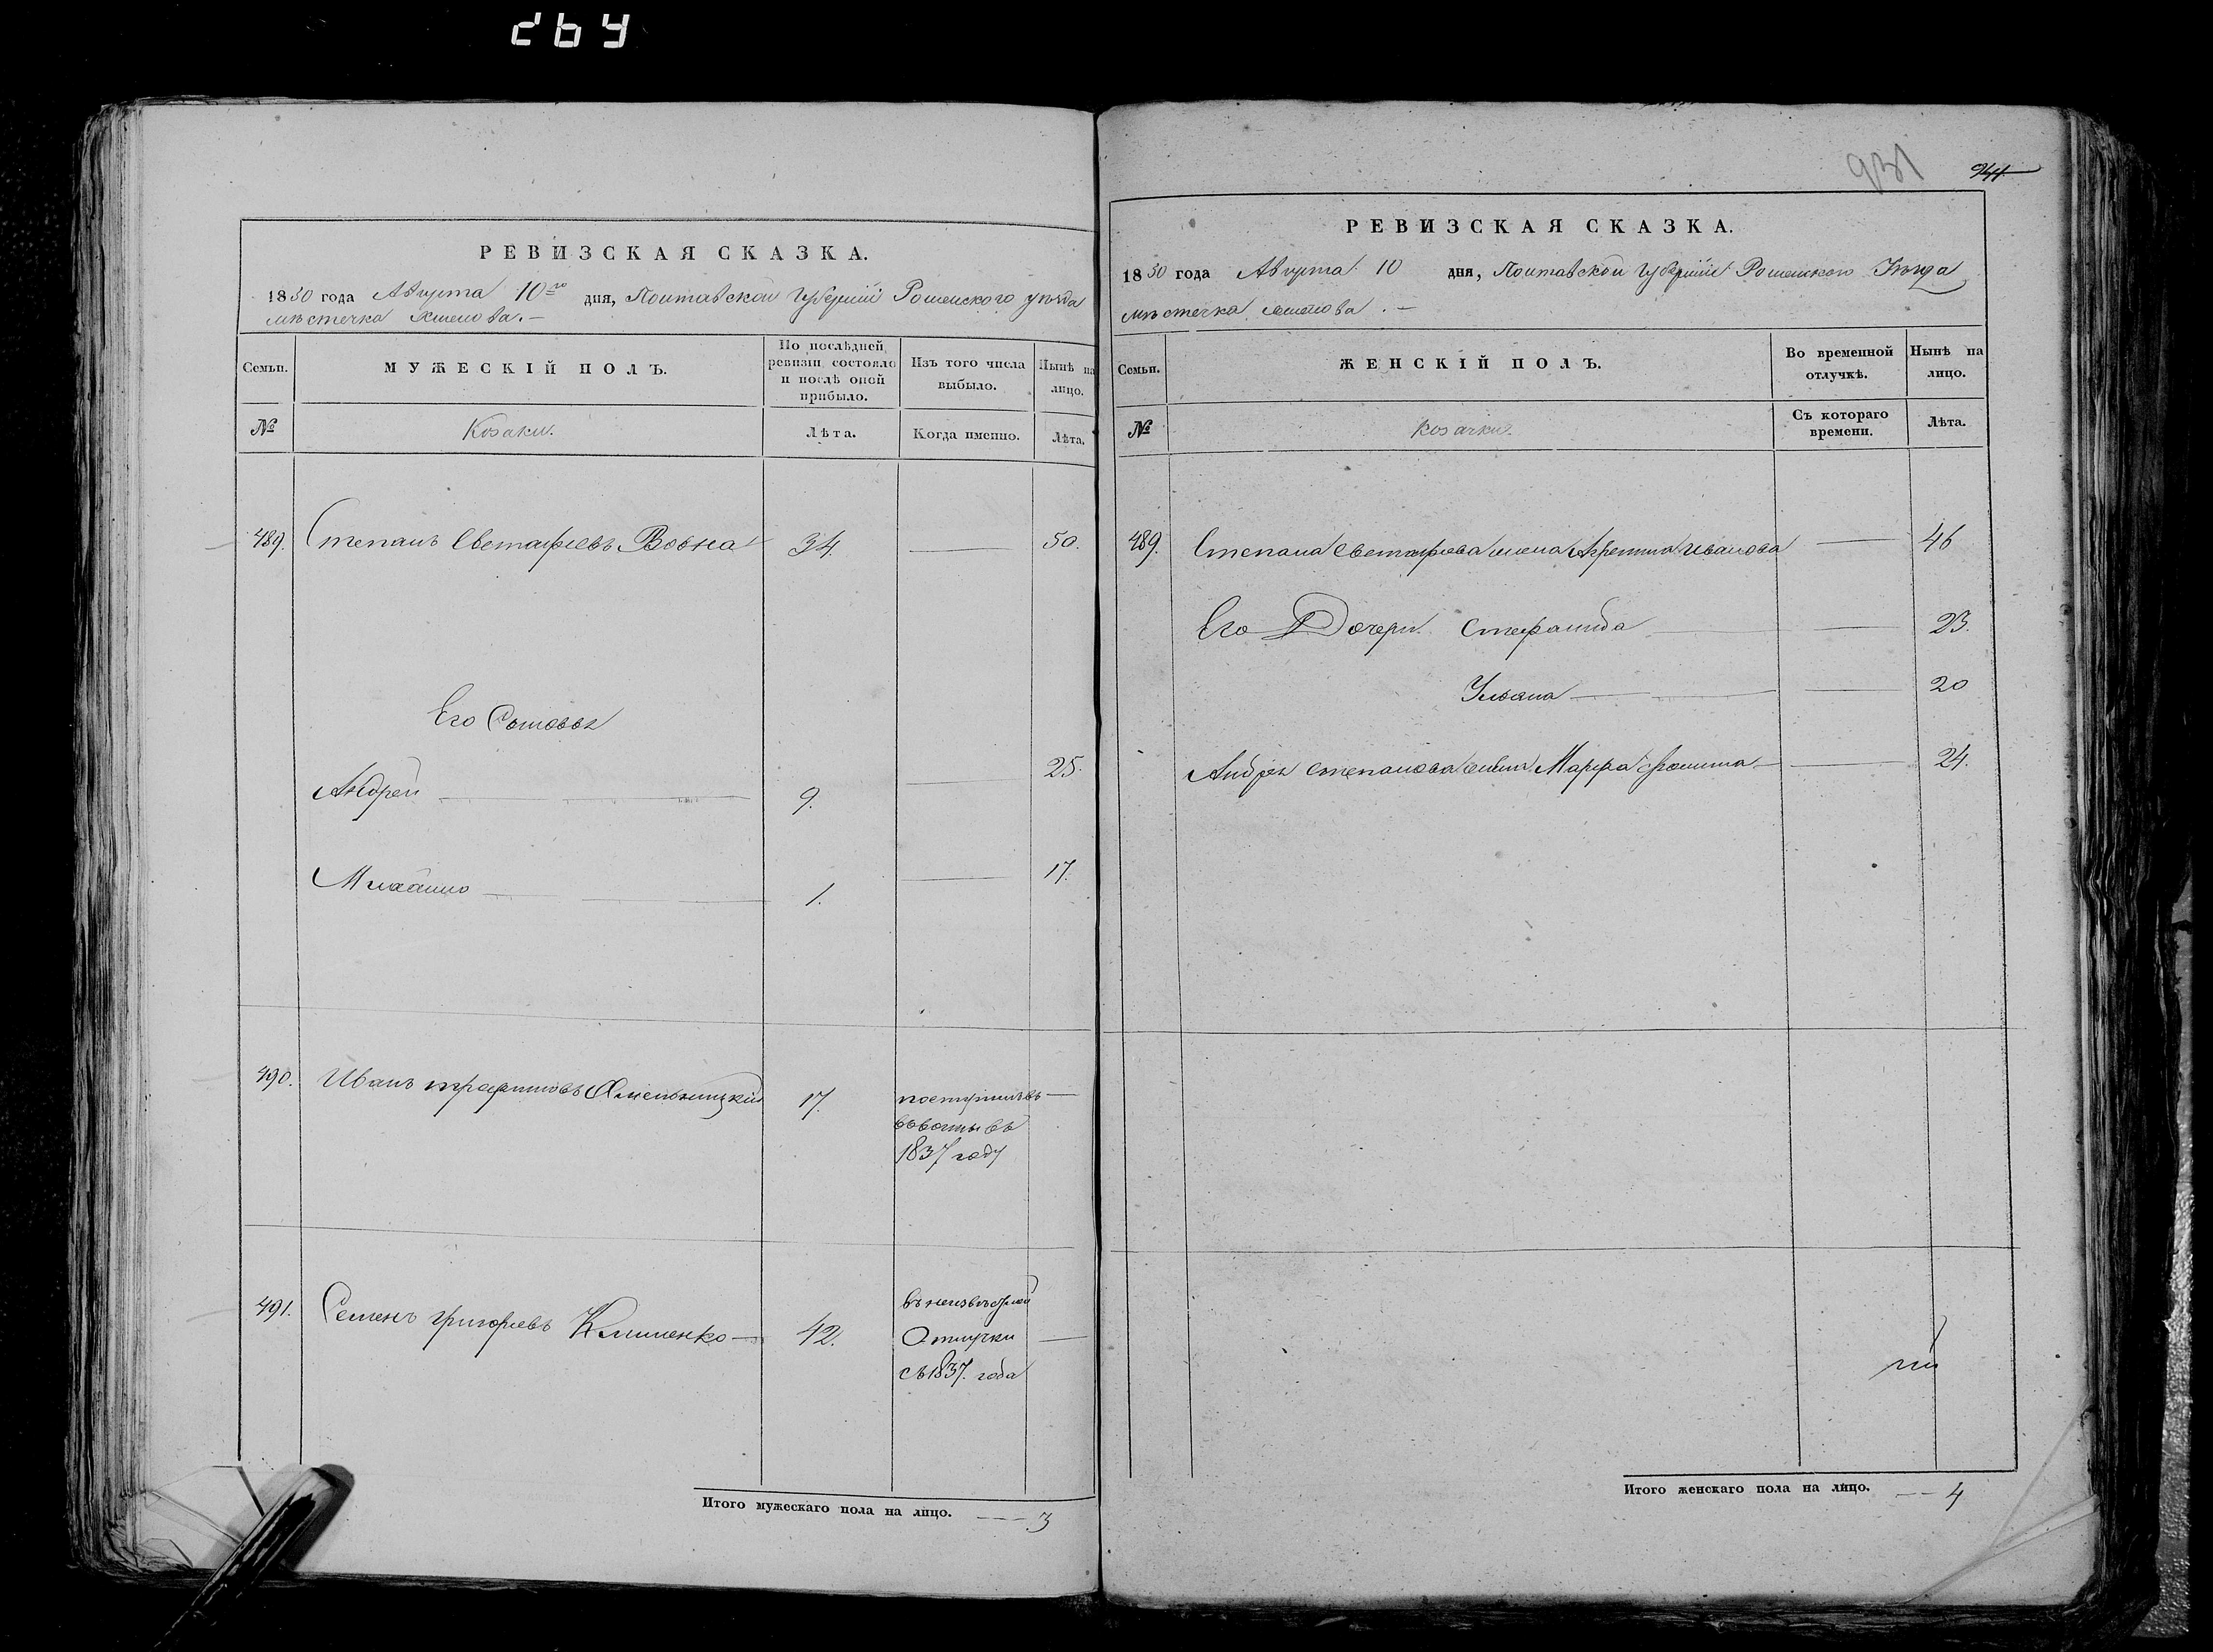 РЕВИЗСКАЯ СКАЗКА.
1850 года Августа 10го дня, Полтавской Губерніи Роменского уезда
мѣстечка
Семьи.
МУЖЕСКІЙ ПОЛЪ.
По послѣдней ревизіи состояло и послѣ оной прибыло.
Изъ того числа выбыло.
Нынѣ на лицо.
№
Козаки.
Лѣта.
Когда именно.
Лѣта.
489. Степанъ Евстафіевъ Вовна 34. 50.
Его Сыновья
Андрей 9. 25.
Михайло 1. 17.
490. Иванъ трофимовъ 17. поступилъ
въ
1837 году
491. Семенъ григорьевъ Клименко 42. въ неизвѣстной
Отлучки
съ 1837. года
Итого мужескаго пола на лицо. 3
931
944
РЕВИЗСКАЯ СКАЗКА.
1850 года Августа 10 дня, Полтавской Губерніи Роменского Уезда
мѣстечка
Семьи.
ЖЕНСКІЙ ПОЛЪ.
Во временной отлучкѣ.
Нынѣ на лицо.
№
Козачки.
Съ котораго времени.
Лѣта.
489. Степана Евстафіева жена Иванова 46
Его Дочери Стефанида 23.
Ульяна 20
Андрея Степанова жена Марфа 24.
Итого женскаго пола на лицо. 4
264